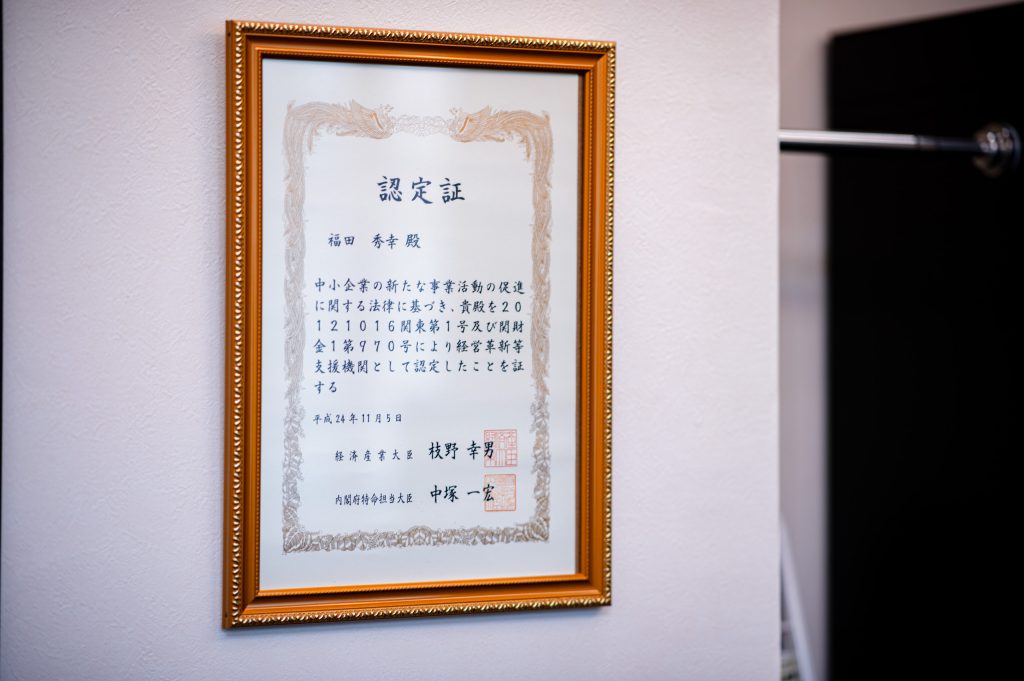 認定証
福田 秀幸 殿
中小企業の新たな事業活動の促進
に関する法律に基づき、貴殿を２０
１２１０１６関東第１号及び関財
金１第９７０号により経営革新等
支援機関として認定したことを証
する
平成24年11月5日
経済産業大臣 枝野 幸男
内閣府特命担当大臣 中塚 一宏